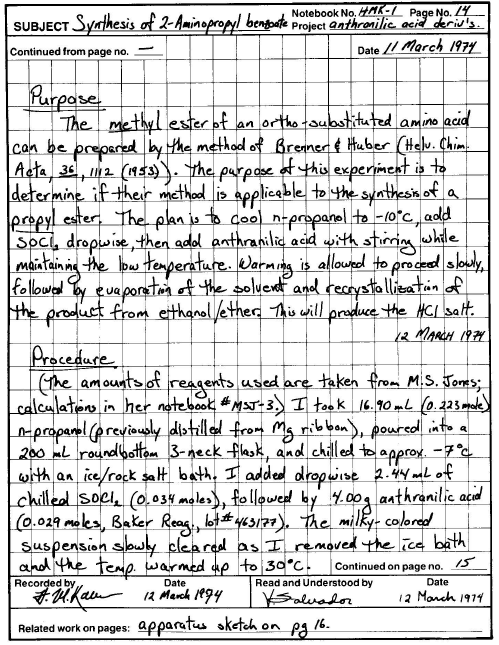 Notebook No. HMK-1 Page No. 14
SUBJECT Synthesis of 2-Aminopropyl benzoate Project anthranilic acid deriv's.
Continued from page no. — Date 11 March 1974
Purpose
The methyl ester of an ortho-substituted amino acid
can be prepared by the method of Brenner & Huber (Helv. Chim.
Acta, 36, 1112 (1953)). The purpose of this experiment is to
determine if their method is applicable to the synthesis of a
propyl ester. The plan is to cool n-propanol to -10°C, add
SOCl₂ dropwise, then add anthranilic acid with stirring while
maintaining the low temperature. Warming is allowed to proceed slowly,
followed by evaporation of the solvent and recrystallization of
the product from ethanol/ether. This will produce the HCl salt.
12 MARCH 1974
Procedure
(The amounts of reagents used are taken from M.S. Jones;
calculations in her notebook #MSJ-3.) I took 16.90 mL (0.223 mole)
n-propanol (previously distilled from Mg ribbon), poured into a
200 mL roundbottom 3-neck flask, and chilled to approx. -7°C
with an ice/rock salt bath. I added dropwise 2.44 mL of
chilled SOCl₂ (0.034 moles), followed by 4.00g anthranilic acid
(0.029 moles, Baker Reag., lot #463177). The milky-colored
suspension slowly cleared as I removed the ice bath
and the temp. warmed up to 30°C. Continued on page no. 15
Recorded by Date Read and Understood by Date
12 March 1974 V Salvador 12 March 1974
Related work on pages: apparatus sketch on pg 16.